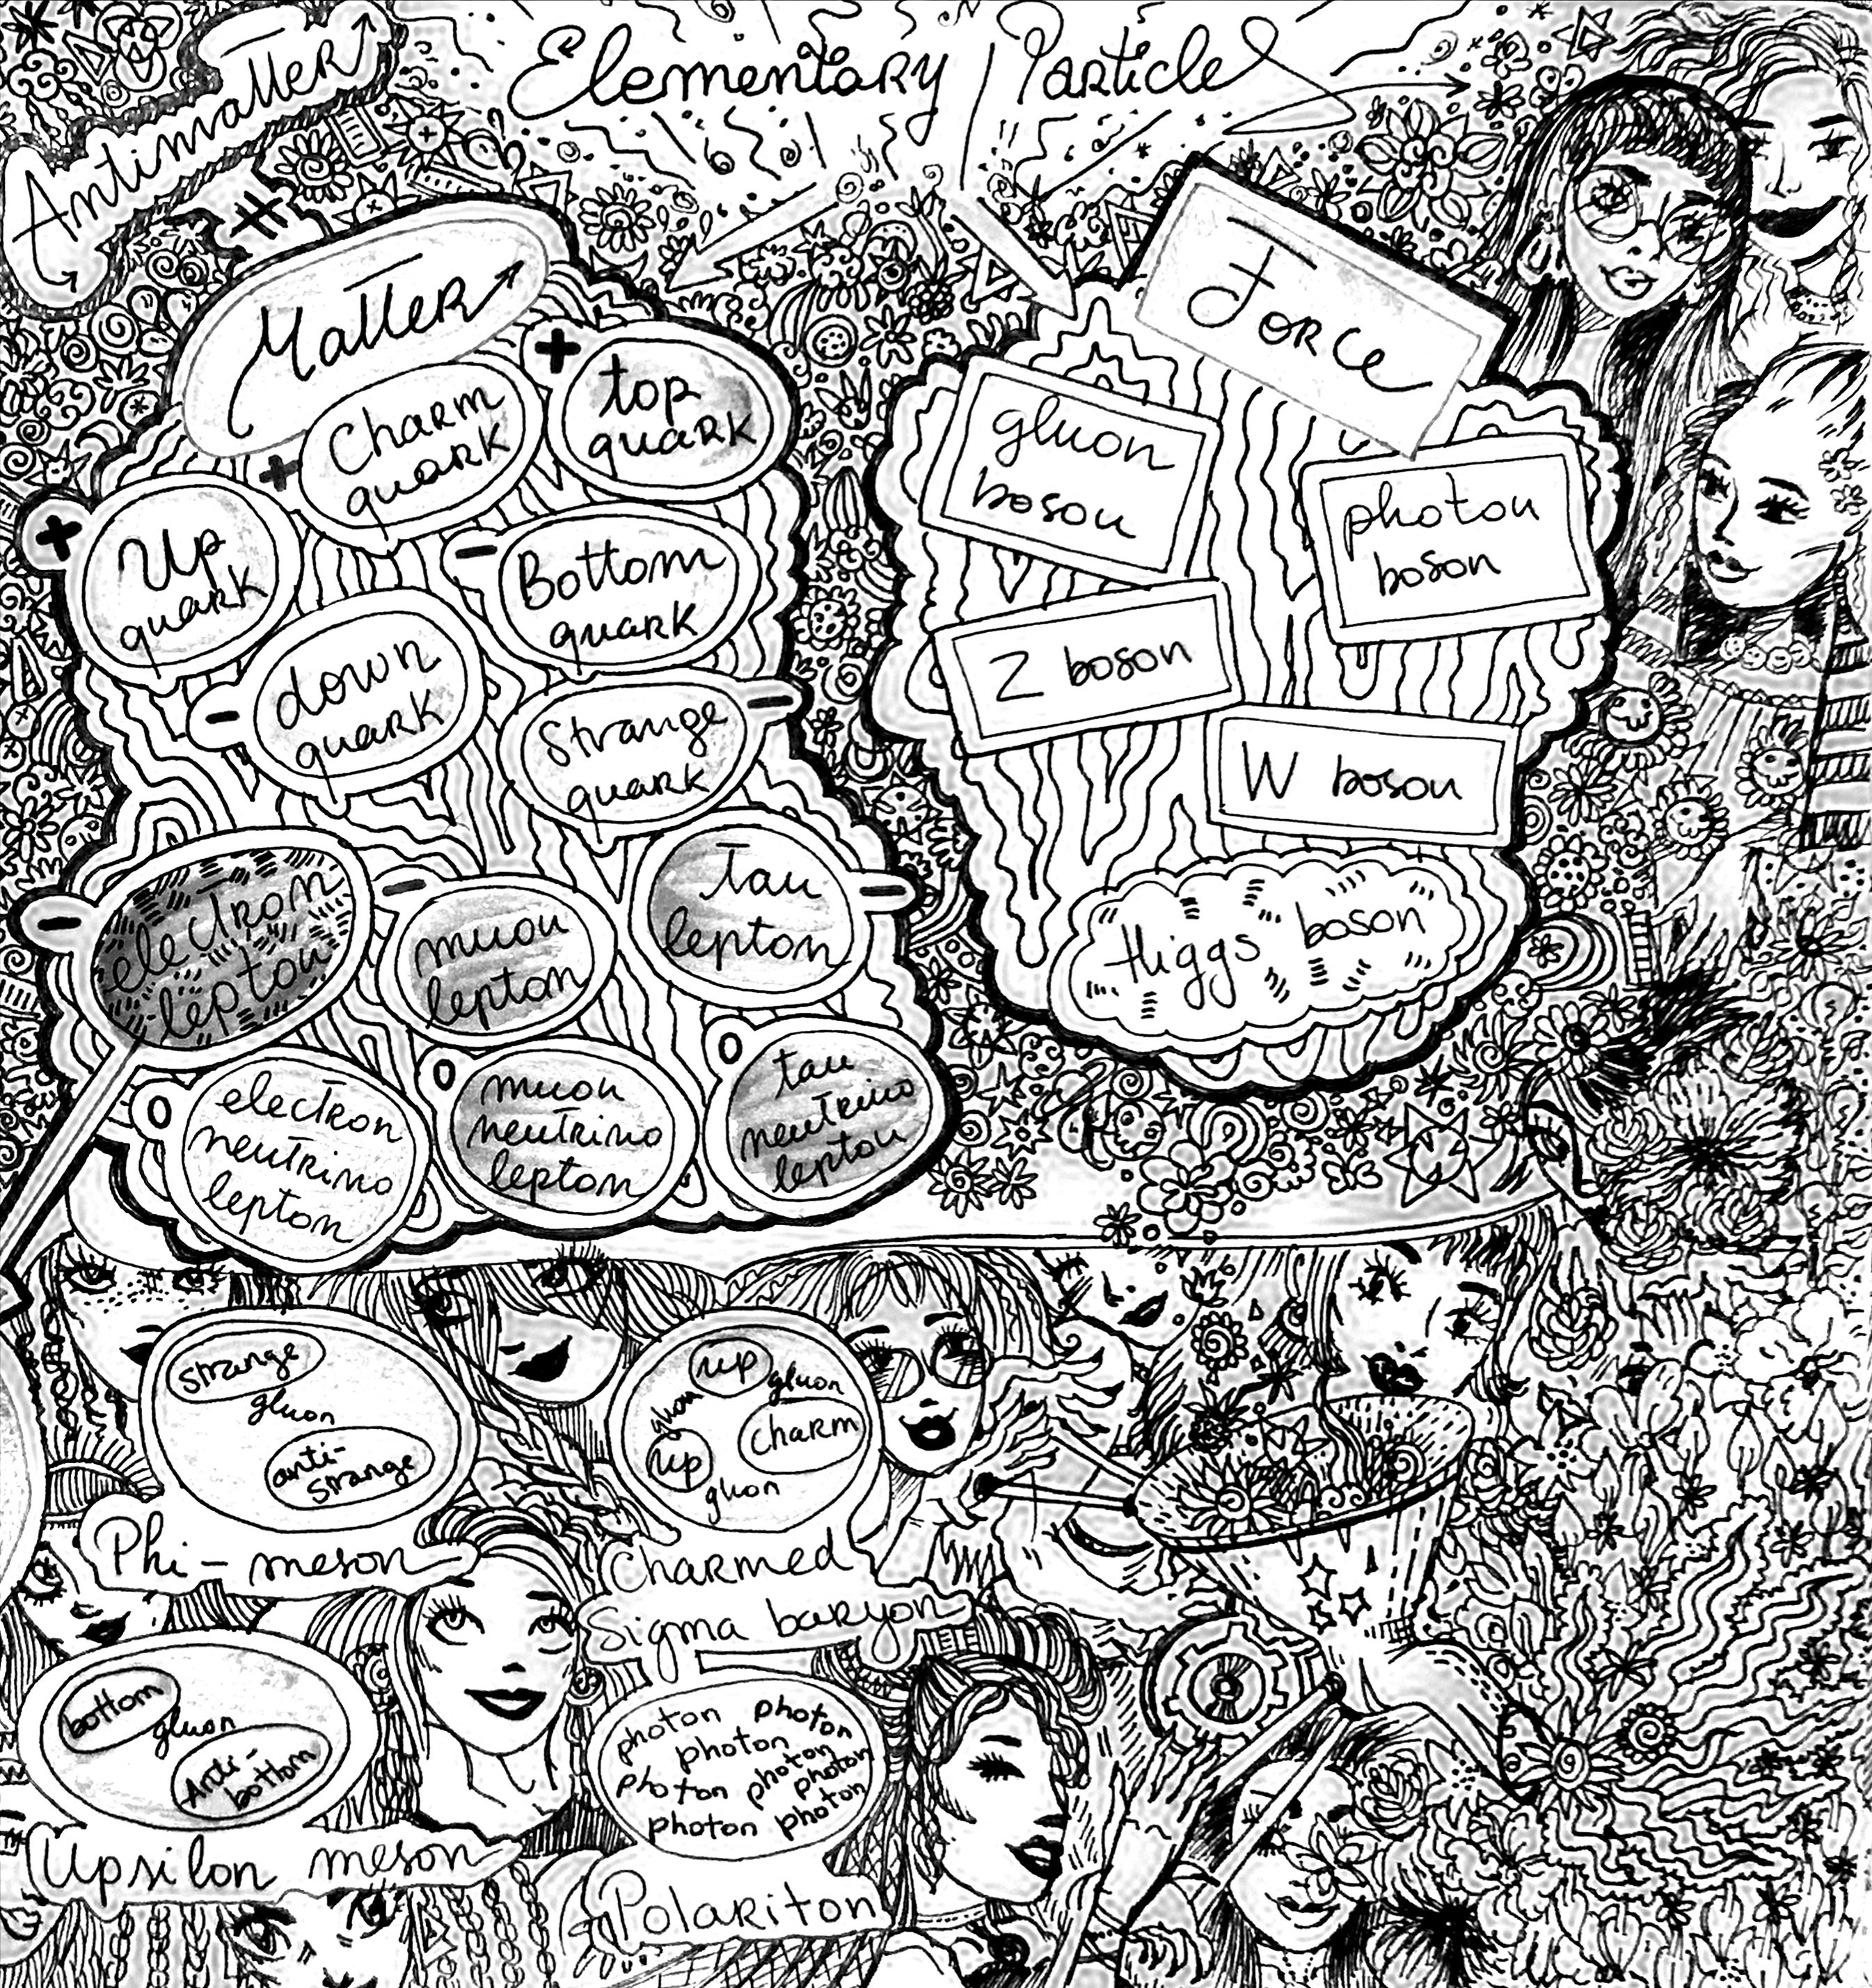 Elementary Particles
Antimatter
Matter
+
top
quark
+
Charm
quark
+
Up
quark
-
Bottom
quark
-
down
quark
-
Strange
quark
-
electron
lepton
-
muon
lepton
-
Tau
lepton
0
electron
neutrino
lepton
0
muon
neutrino
lepton
0
tau
neutrino
lepton
Force
gluon
boson
photon
boson
Z boson
W boson
Higgs boson
strange
gluon
anti-
strange
Phi-meson
up
gluon
gluon
charm
up
gluon
Charmed
Sigma baryon
bottom
gluon
Anti-
bottom
Upsilon meson
photon photon
photon
photon photon
photon
photon photon
Polariton